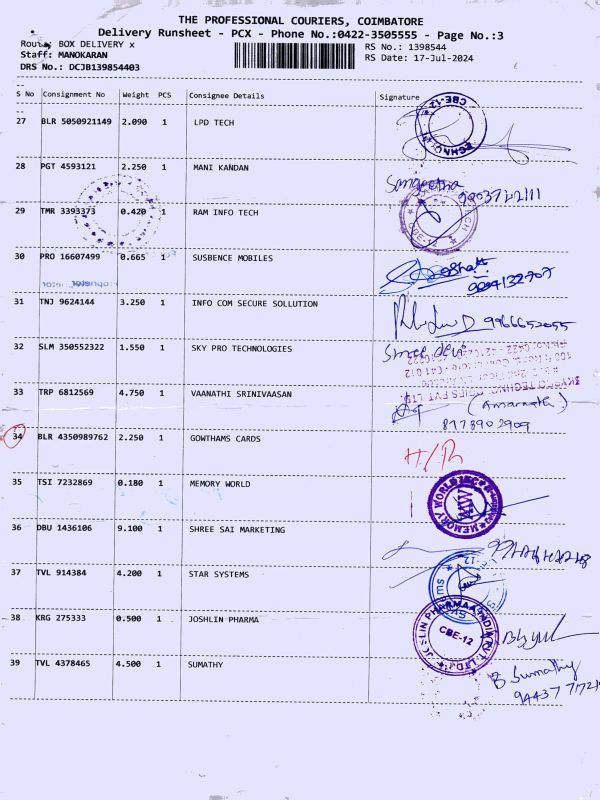 THE PROFESSIONAL COURIERS, COIMBATORE
Delivery Runsheet - PCX - Phone No.:0422-3505555 - Page No.:3
Route: BOX DELIVERY x
RS No.: 1398544
Staff: MANOKARAN
RS Date: 17-Jul-2024
DRS No.: DCJB139854403
S No Consignment No Weight PCS Consignee Details Signature
27 BLR 5050921149 2.090 1 LPD TECH
CBE-12
28 PGT 4593121 2.250 1 MANI KANDAN
Sangeetha
29 TMR 3393373 0.420 1 RAM INFO TECH
CBE-12
30 PRO 16607499 0.665 1 SUSBENCE MOBILES
31 TNJ 9624144 3.250 1 INFO COM SECURE SOLLUTION
9966652055
32 SLM 350552322 1.550 1 SKY PRO TECHNOLOGIES
33 TRP 6812569 4.750 1 VAANATHI SRINIVAASAN
(Amarnath)
8973902909
34 BLR 4350989762 2.250 1 GOWTHAMS CARDS
35 TSI 7232869 0.180 1 MEMORY WORLD
MEMORY WORLD
MW
36 DBU 1436106 9.100 1 SHREE SAI MARKETING
37 TVL 914384 4.200 1 STAR SYSTEMS
38 KRG 275333 0.500 1 JOSHLIN PHARMA
JOSHLIN PHARMAA INDIA (P) LTD.
CBE-12
39 TVL 4378465 4.500 1 SUMATHY
B Sumathy